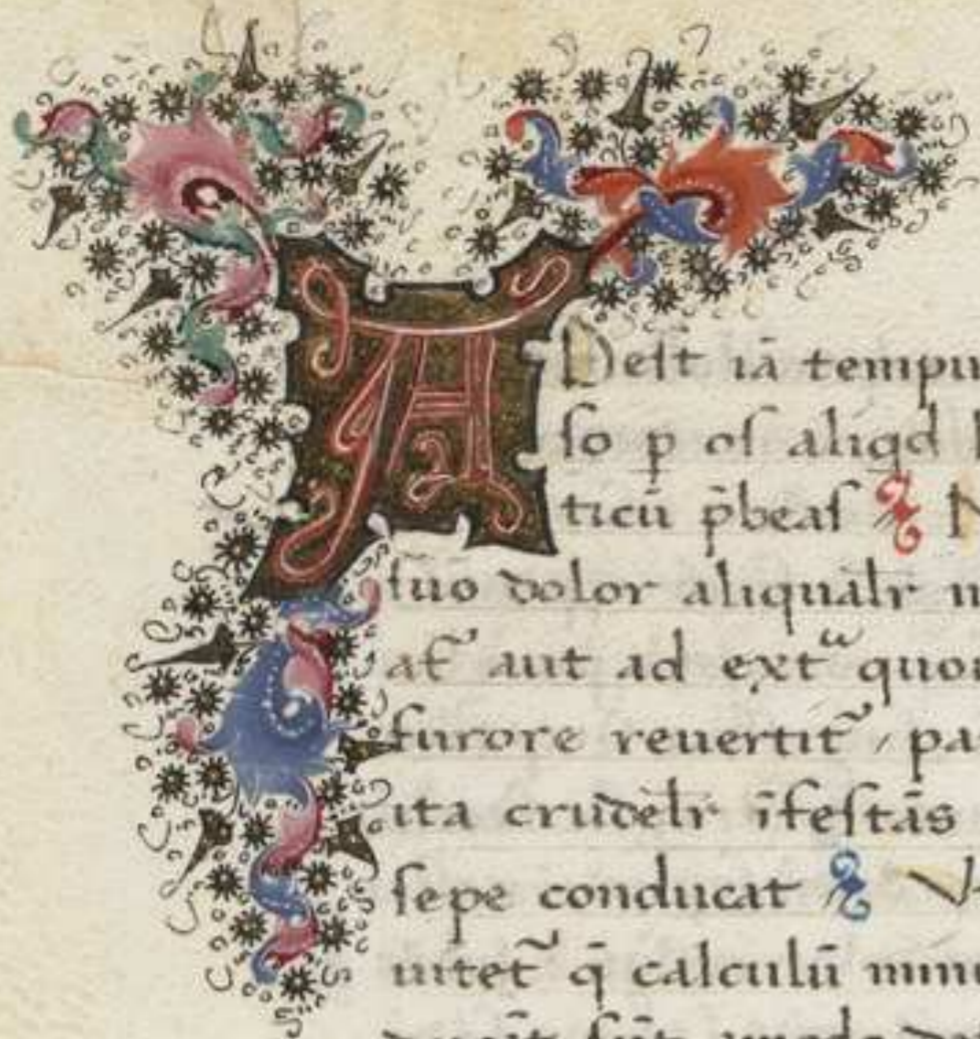 ADeſt iā tempu
ſo p oſ aliqd
ticū p̄beaſ
ſuo dolor aliqualr
at̃ aut ad extᵃ quo
furore reuertit̃ / pa
ita crudelr īfeſtās
ſepe conducat V
uitet̃ q̄ calculū